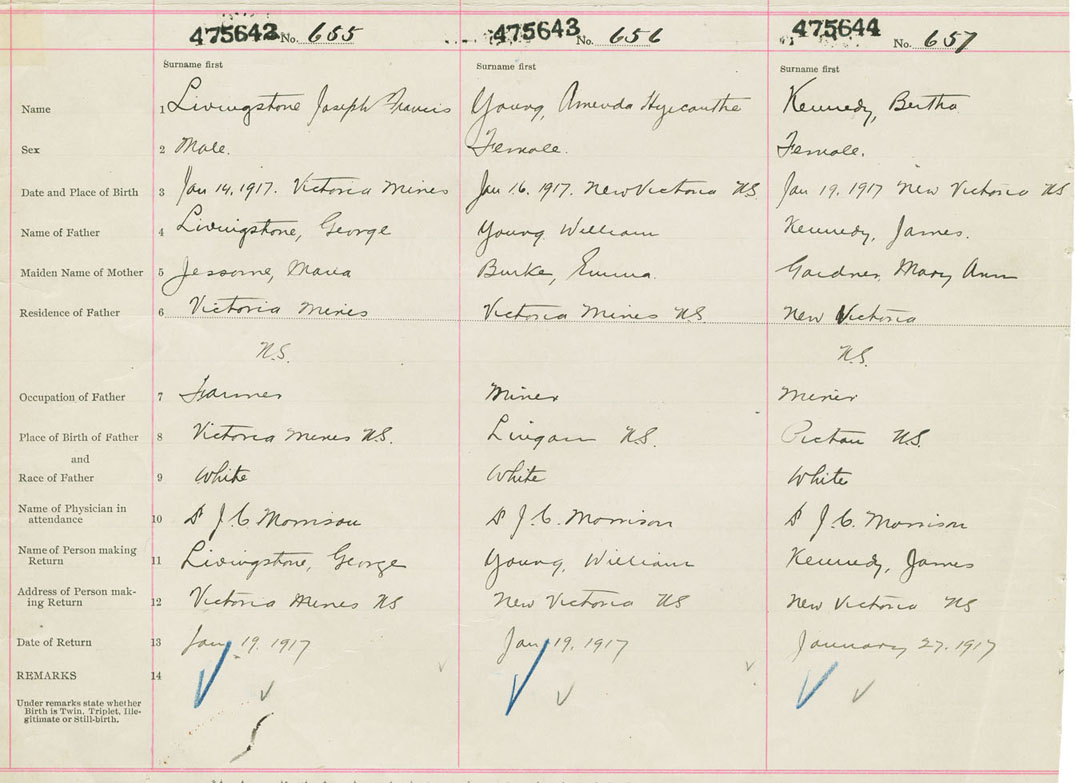 475642 No. 655 475643 No. 656 475644 No. 657
Surname first Surname first Surname first
Name 1 Livingstone Joseph Francis Young, Amenda Hyicanthe Kennedy, Bertha
Sex 2 Male. Female. Female.
Date and Place of Birth 3 Jan 14, 1917. Victoria Mines Jan 16, 1917. New Victoria N.S. Jan 19, 1917 New Victoria N.S
Name of Father 4 Livingstone, George Young William Kennedy, James.
Maiden Name of Mother 5 Jessome, Burke, Emma. Gardner, Mary Ann
Residence of Father 6 Victoria Mines Victoria Mines N.S. New Victoria
N.S. N.S.
Occupation of Father 7 Farmer Miner Miner
Place of Birth of Father 8 Victoria Mines N.S. Lingan N.S. Pictou N.S.
and
Race of Father 9 White White White
Name of Physician in
attendance 10 Dr J. C. Morrison Dr J. C. Morrison Dr J. C. Morrison
Name of Person making
Return 11 Livingstone, George Young, William Kennedy, James
Address of Person mak-
ing Return 12 Victoria Mines NS New Victoria NS New Victoria NS
Date of Return 13 Jan 19, 1917 Jan 19, 1917 January 27, 1917
REMARKS 14
Under remarks state whether
Birth is Twin, Triplet, Ille-
gitimate or Still-birth.